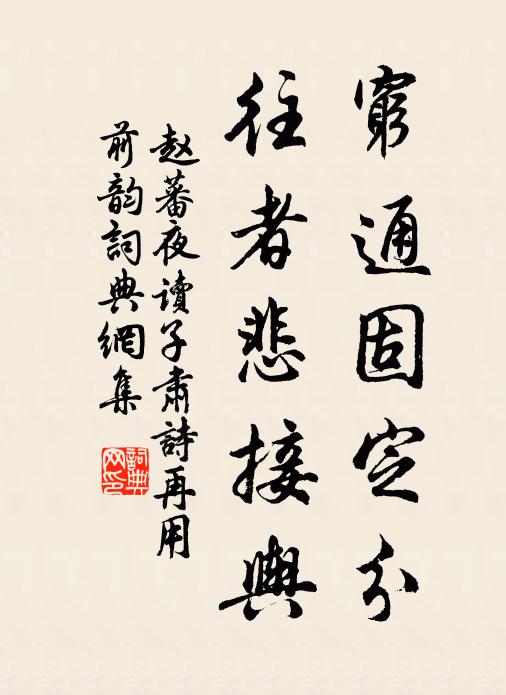 窮通固定分
往者悲接輿
赵蕃夜讀子肅詩再用
前韵詞典網集
詞典
网印